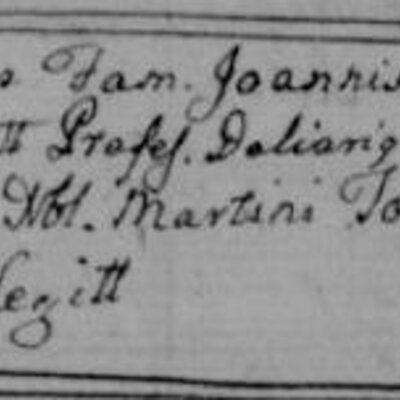 Fam. Joannis
tt Profes. Doliariq
Nbl. Martini To
legitt